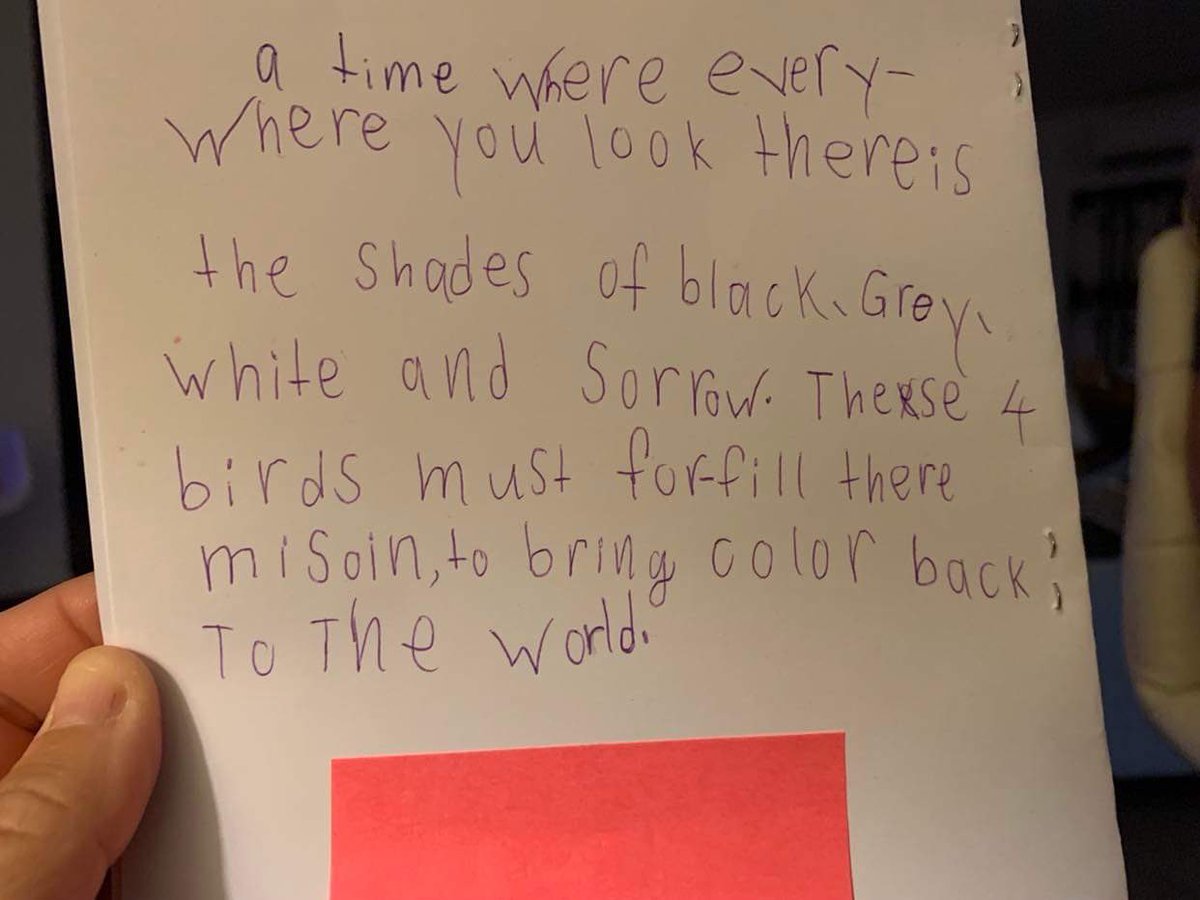 a time where every-
where you look thereis
the shades of black, Grey,
white and Sorrow. These 4
birds must forfill there
misoin, to bring color back
To The world.